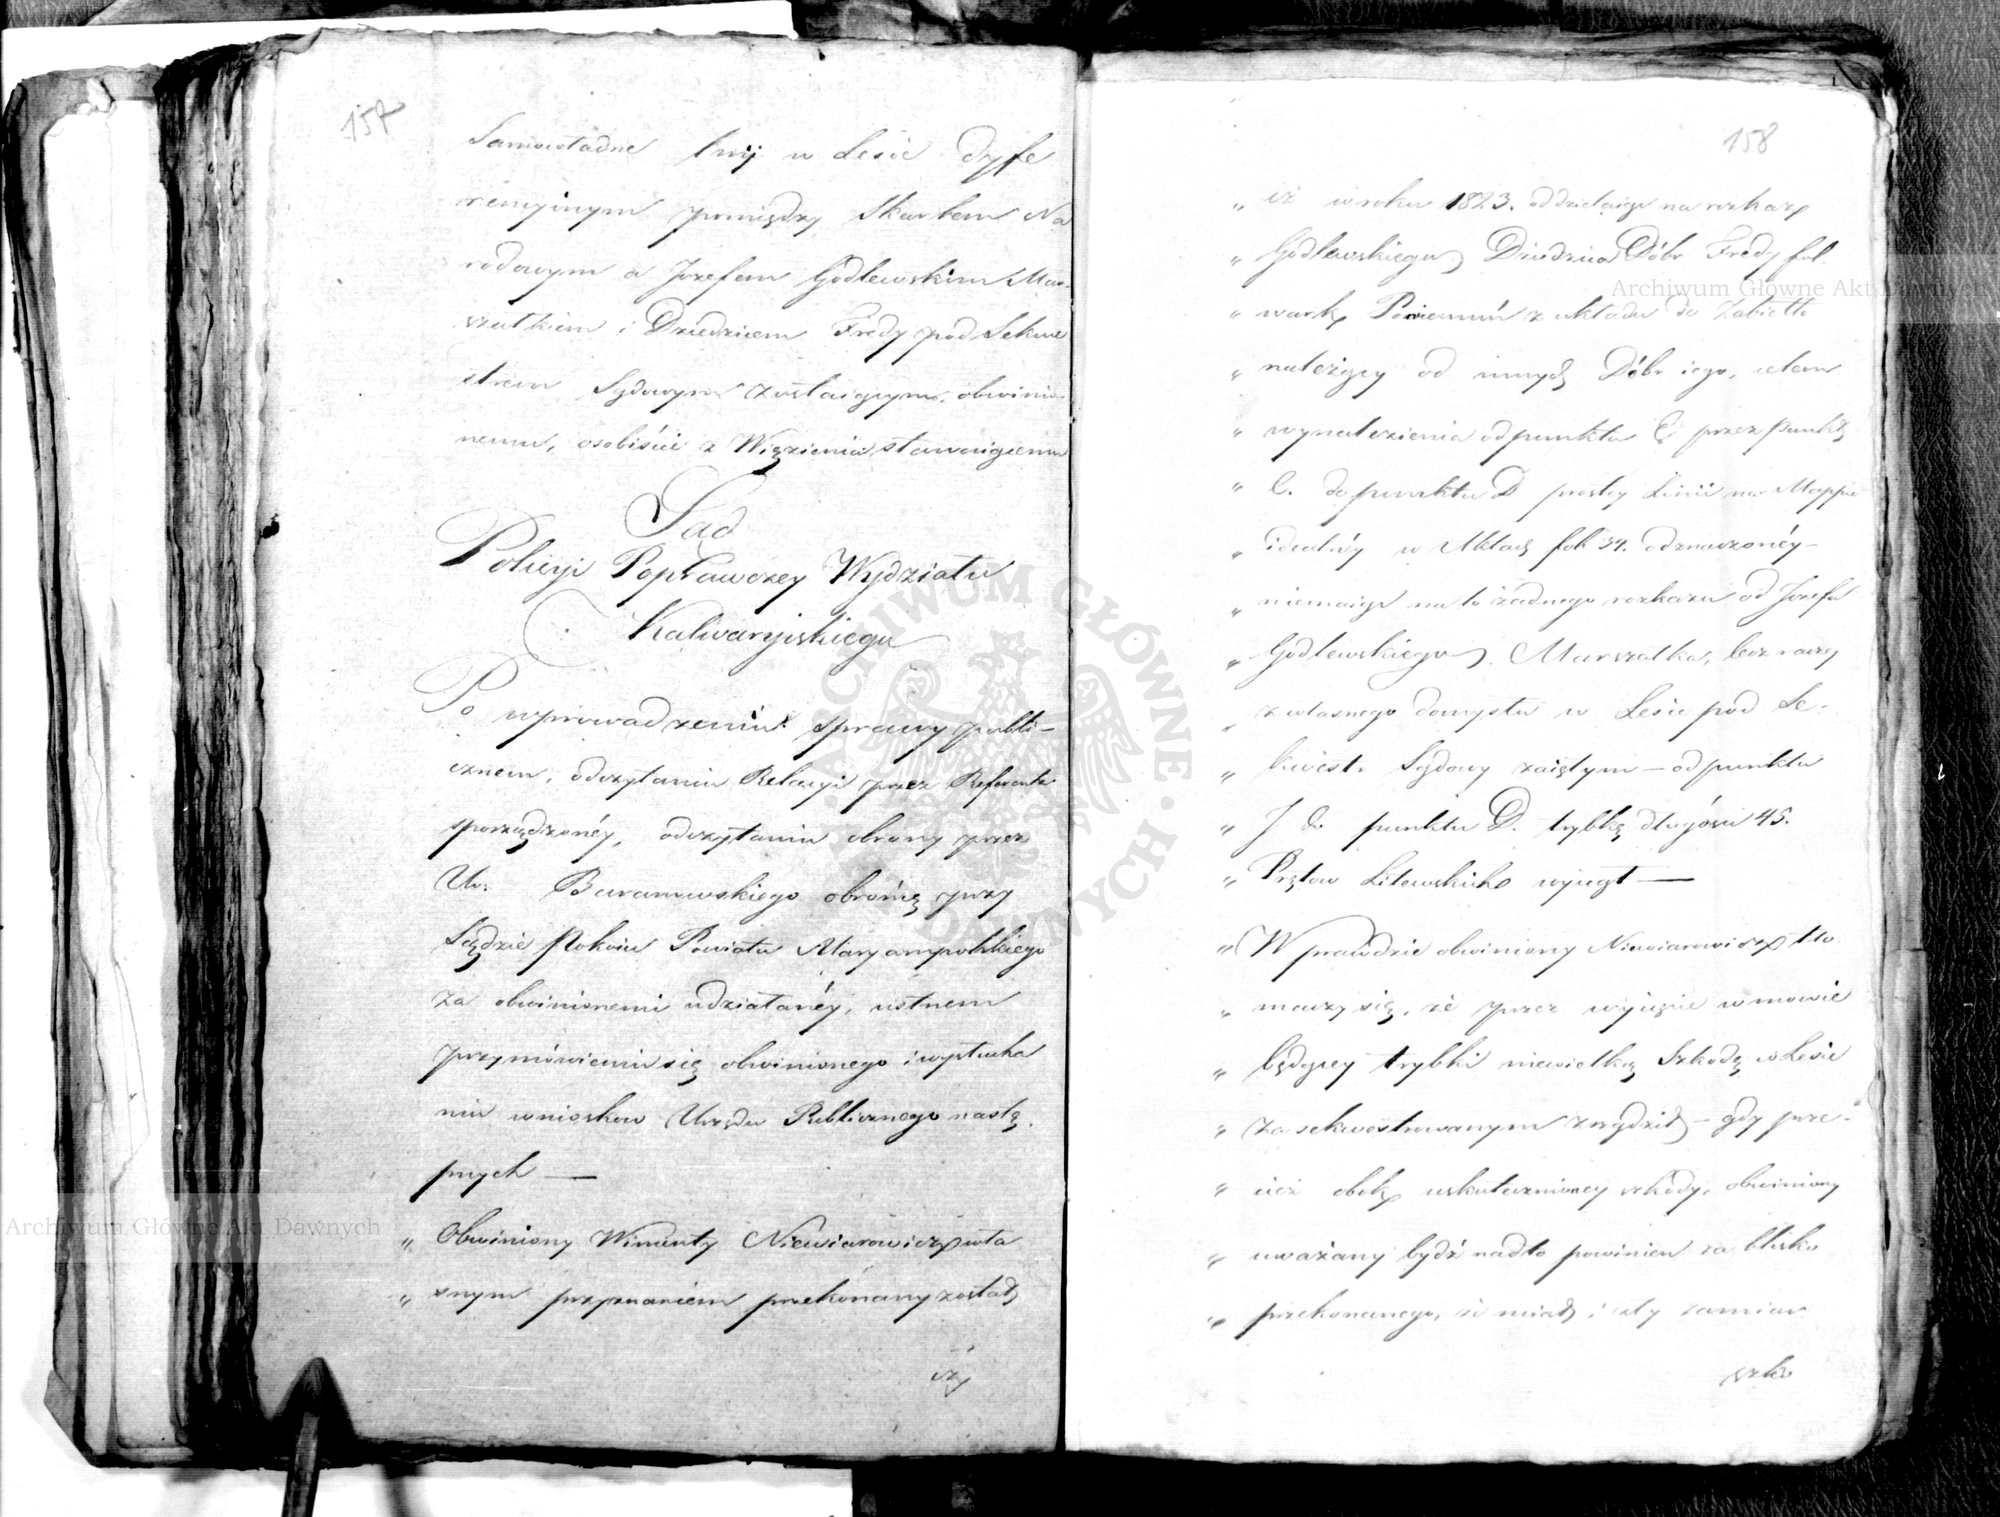 157
Samowładne linij w Lesie dyffe
rencyinym pomiędzy Skarbem Na
rodowym a Jozefem Godlewskim Mar-
szałkiem i Dziedzicem Fredy pod Sekwe
strem Sądowym zostaiącym, obwinio-
nemu, osobiście z Więzienia stawaiącemu
Sąd
Policyi Poprawczey Wydziału
Kalwaryiskiego
Po wprowadzeniu sprawy publi-
cznem, odczytaniu Relacyi przez Referenta
sporządzonéy, odczytaniu obrony przez
Ur. Baranowskiego obrońcę przy
Sądzie Pokoiu Powiatu Maryampolskiego
za obwinionemi udziałanéy, ustnem
przymówieniu się obwinionego i wysłucha
niu wniosków Urzędu Publicznego nastę-
pnych —
„ Obwiniony Wincenty Niewiarowicz wła
„ snym przyznaniem przekonany został,
iż
158
„ iż w roku 1823. oddzielaiąc na rozkaz
„ Godlewskiego Dziedzica Dóbr Fredy fol-
„ wark Poniemuń z układu do Zabiełło
„ należący od innych Dóbr iego, celem
„ wynalezienia od punktu C przez punkt
„ C. do punktu D prostey Linii na Mappie
„ idealnéy w Aktach fol: 34. odznaczonéy —
„ niemaiąc na to żadnego rozkazu od Jozefa
„ Godlewskiego Marszałka, lecz raczey
„ z własnego domysłu w Lesie pod Se-
„ kwestr Sądowy zaiętym — od punktu
„ J do punktu D. trybkę długości 45.
„ Prętow Litewskich wyciął —
„ Wprawdzie obwiniony Niewiarowicz tło-
„ maczy się, że przez wycięcie w mowie
„ będącey trybki niewielką Szkodę w Lesie
„ zasekwestrowanym zrządził — gdy prze-
„ cież obok uskutecznioney szkody, obwiniony
„ uważany bydź nadto powinien za blisko
„ przekonanego, że miał i zły zamiar
szko
Archiwum Główne Akt Dawnych
Archiwum Główne Akt Dawnych
ARCHIWUM GŁÓWNE AKT DAWNYCH